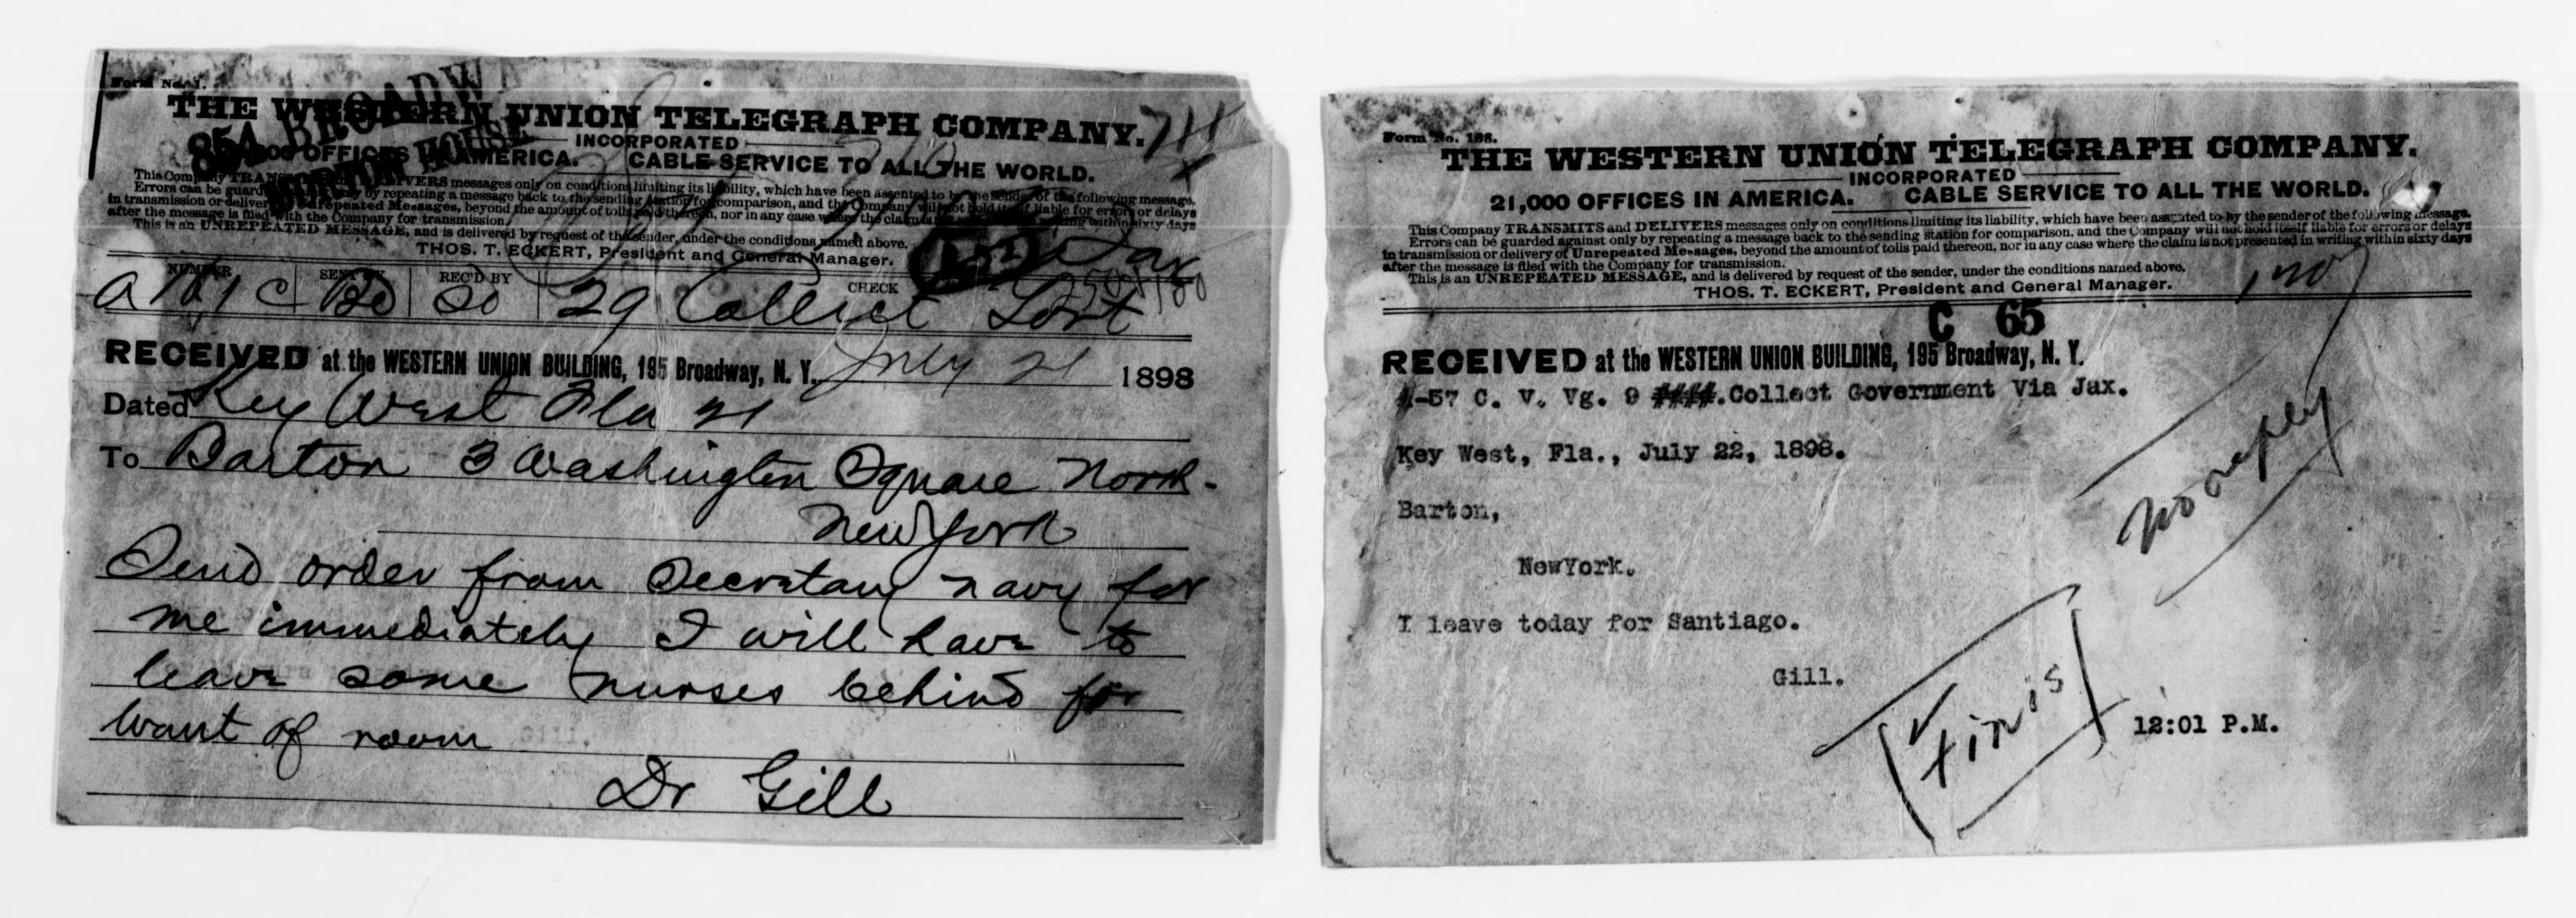 Form No. 1.
THE WESTERN UNION TELEGRAPH COMPANY.
854 BROADWAY
MORTON HOUSE
711
INCORPORATED
21,000 OFFICES IN AMERICA. CABLE SERVICE TO ALL THE WORLD.
This Company TRANSMITS and DELIVERS messages only on conditions limiting its liability, which have been assented to by the sender of the following message.
Errors can be guarded against only by repeating a message back to the sending station for comparison, and the Company will not hold itself liable for errors or delays
in transmission or delivery of Unrepeated Messages, beyond the amount of tolls paid thereon, nor in any case where the claim is not presented in writing within sixty days
after the message is filed with the Company for transmission.
This is an UNREPEATED MESSAGE, and is delivered by request of the sender, under the conditions named above.
THOS. T. ECKERT, President and General Manager.
Jax
NUMBER SENT BY REC'D BY CHECK
29 Collect Govt
RECEIVED at the WESTERN UNION BUILDING, 195 Broadway, N. Y. July 21 1898
Dated Key West Fla 21
To Barton 3 Washington Square North-
New York
Send order from Secretary navy for
me immediately I will have to
leave some nurses behind for
want of room
Dr Gill
Form No. 168.
THE WESTERN UNION TELEGRAPH COMPANY.
INCORPORATED
21,000 OFFICES IN AMERICA. CABLE SERVICE TO ALL THE WORLD.
This Company TRANSMITS and DELIVERS messages only on conditions limiting its liability, which have been assented to by the sender of the following message.
Errors can be guarded against only by repeating a message back to the sending station for comparison, and the Company will not hold itself liable for errors or delays
in transmission or delivery of Unrepeated Messages, beyond the amount of tolls paid thereon, nor in any case where the claim is not presented in writing within sixty days
after the message is filed with the Company for transmission.
This is an UNREPEATED MESSAGE, and is delivered by request of the sender, under the conditions named above.
THOS. T. ECKERT, President and General Manager.
C 65
RECEIVED at the WESTERN UNION BUILDING, 195 Broadway, N. Y.
-57 C. V. Vg. 9 .Collect Government Via Jax.
Key West, Fla., July 22, 1898.
Barton,
NewYork.
I leave today for Santiago.
Gill.
12:01 P.M.
No reply
Finis